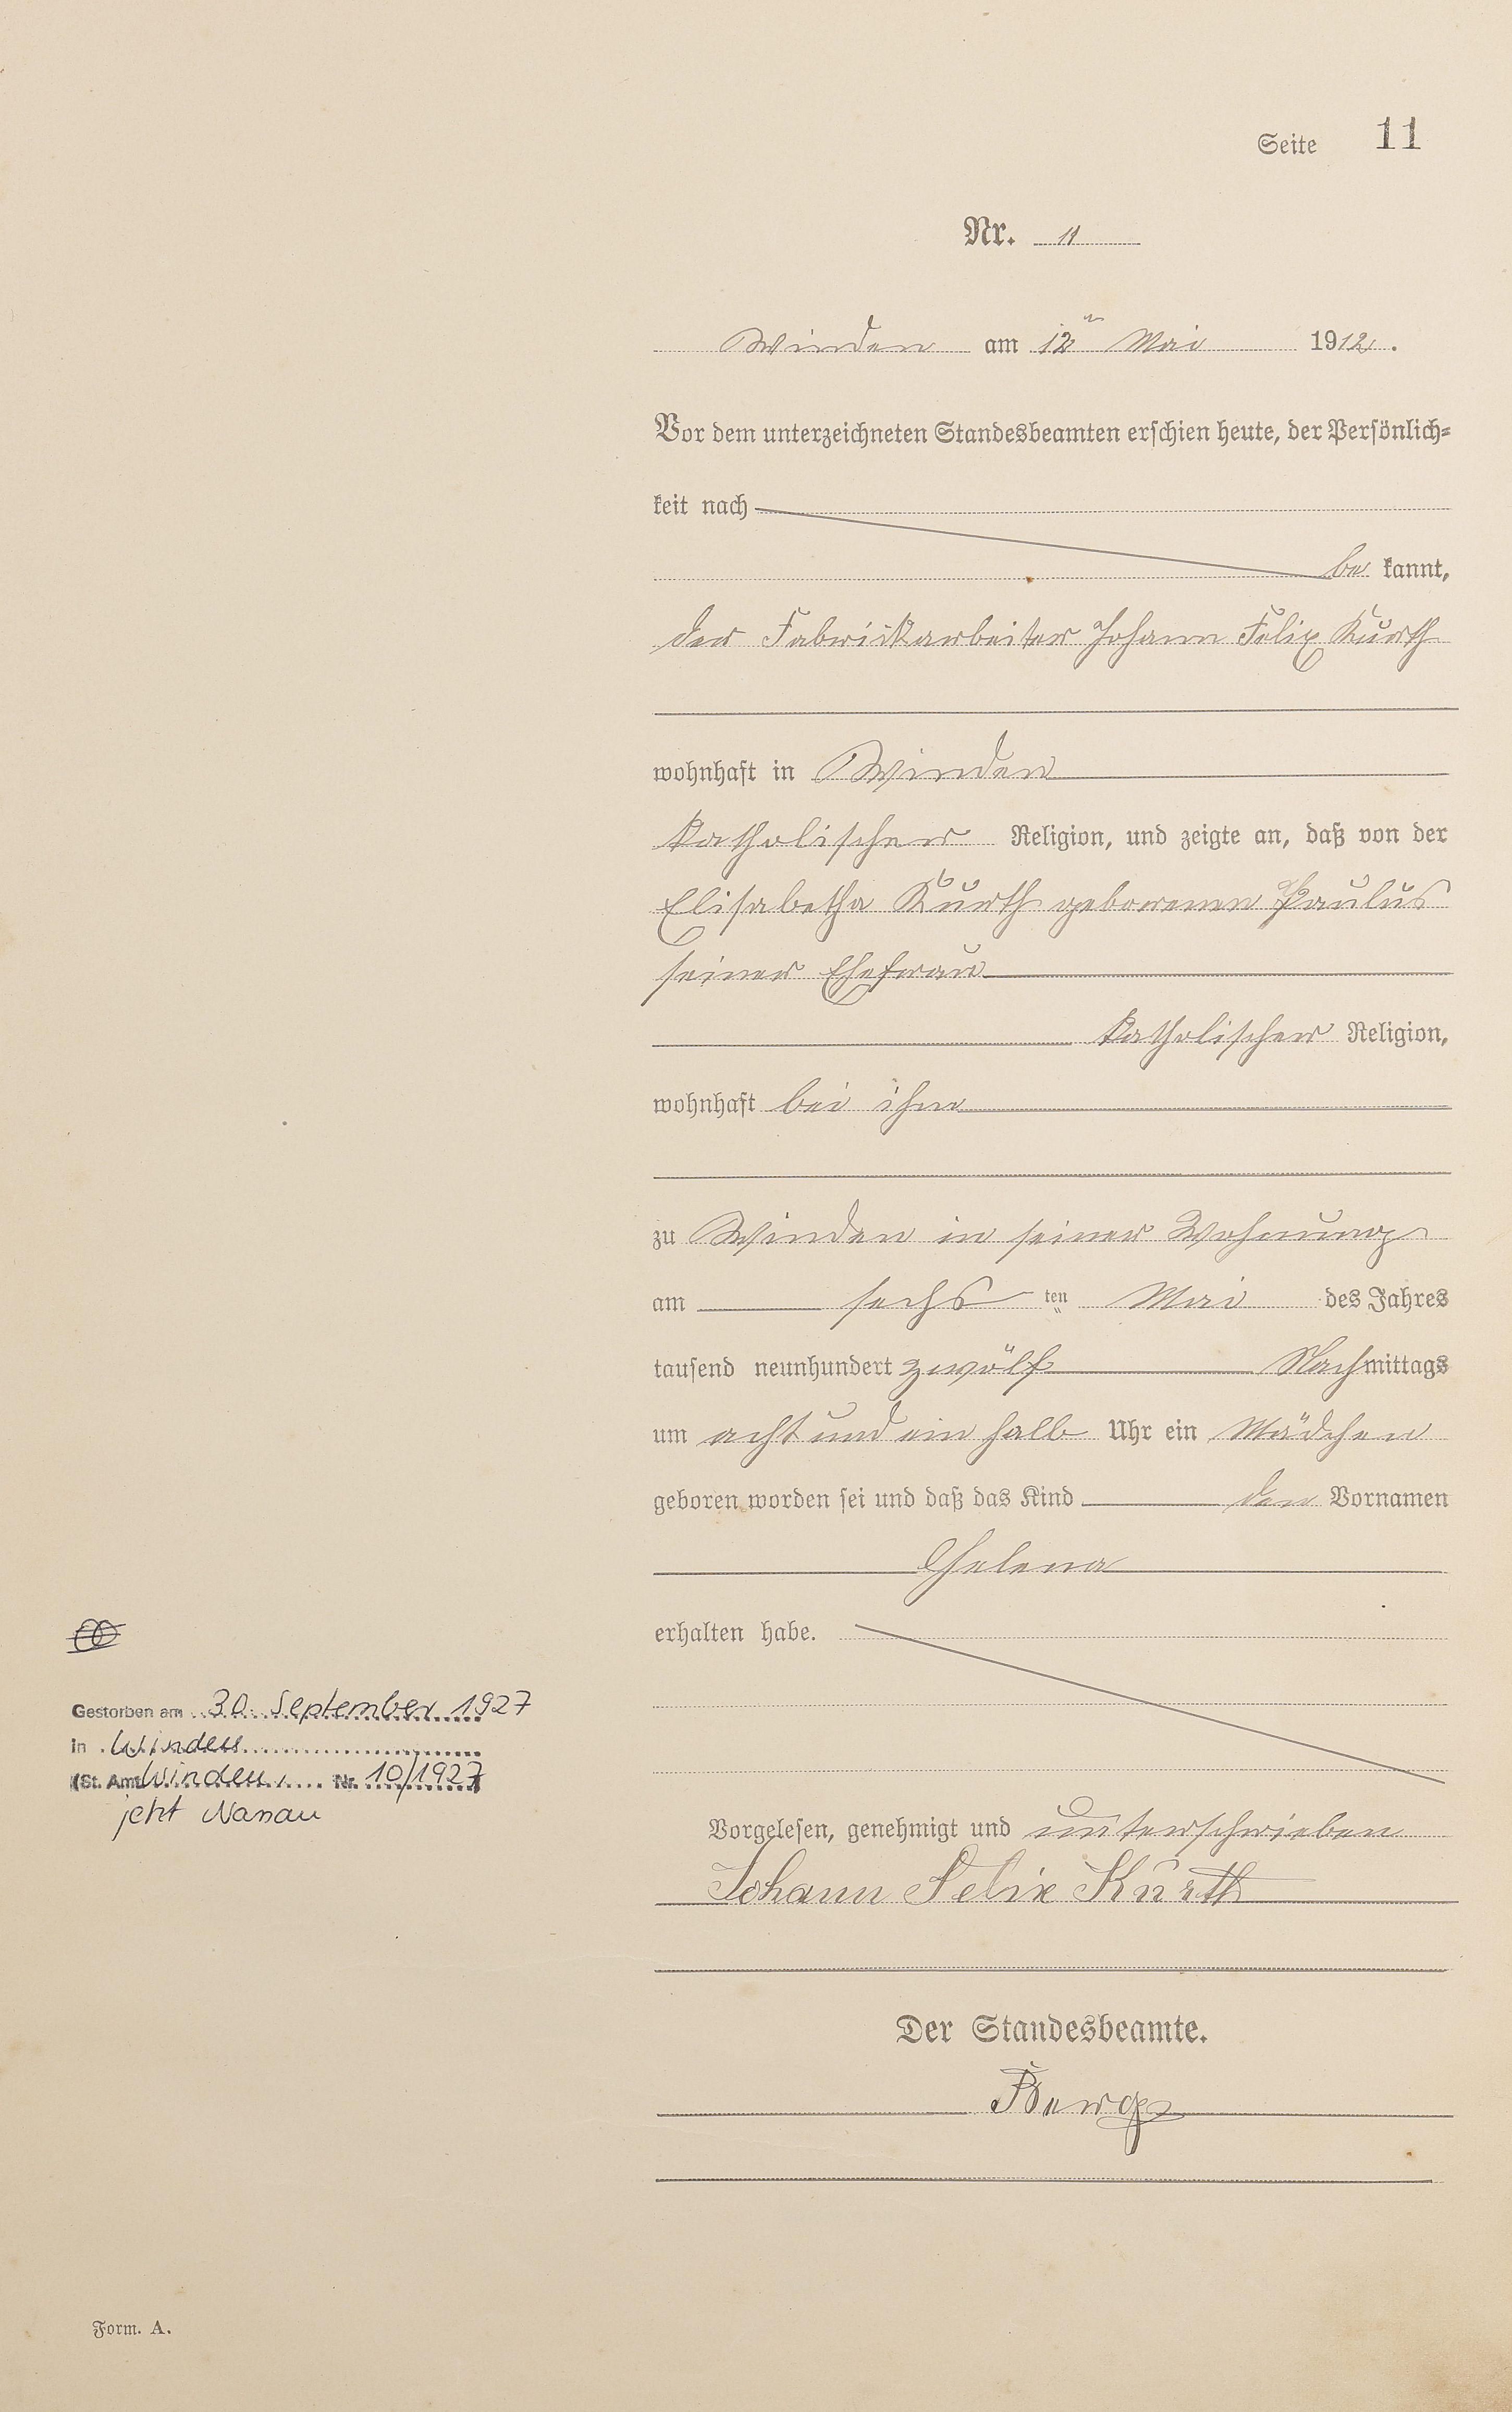 Seite 11
Nr. 11
Winden am 12ten Mai 1912.
Vor dem unterzeichneten Standesbeamten erschien heute, der Persönlich-
keit nach
be kannt,
der Fabrikarbeiter Johann Felix Kurth
wohnhaft in Winden
katholischer Religion, und zeigte an, daß von der
Elisabetha Kurth geborenen Paulus
seiner Ehefrau
katholischer Religion,
wohnhaft bei ihm
zu Winden in seiner Wohnung
am sechs ten Mai des Jahres
tausend neunhundert zwölf Nachmittags
um acht und ein halb Uhr ein Mädchen
geboren worden sei und daß das Kind den Vornamen
Helena
erhalten habe.
Gestorben am 30. September 1927
in Winden
(St. Amt Winden Nr. 10/1927)
jetzt Nassau
Vorgelesen, genehmigt und unterschrieben
Johann Felix Kurth
Der Standesbeamte.
Form. A.